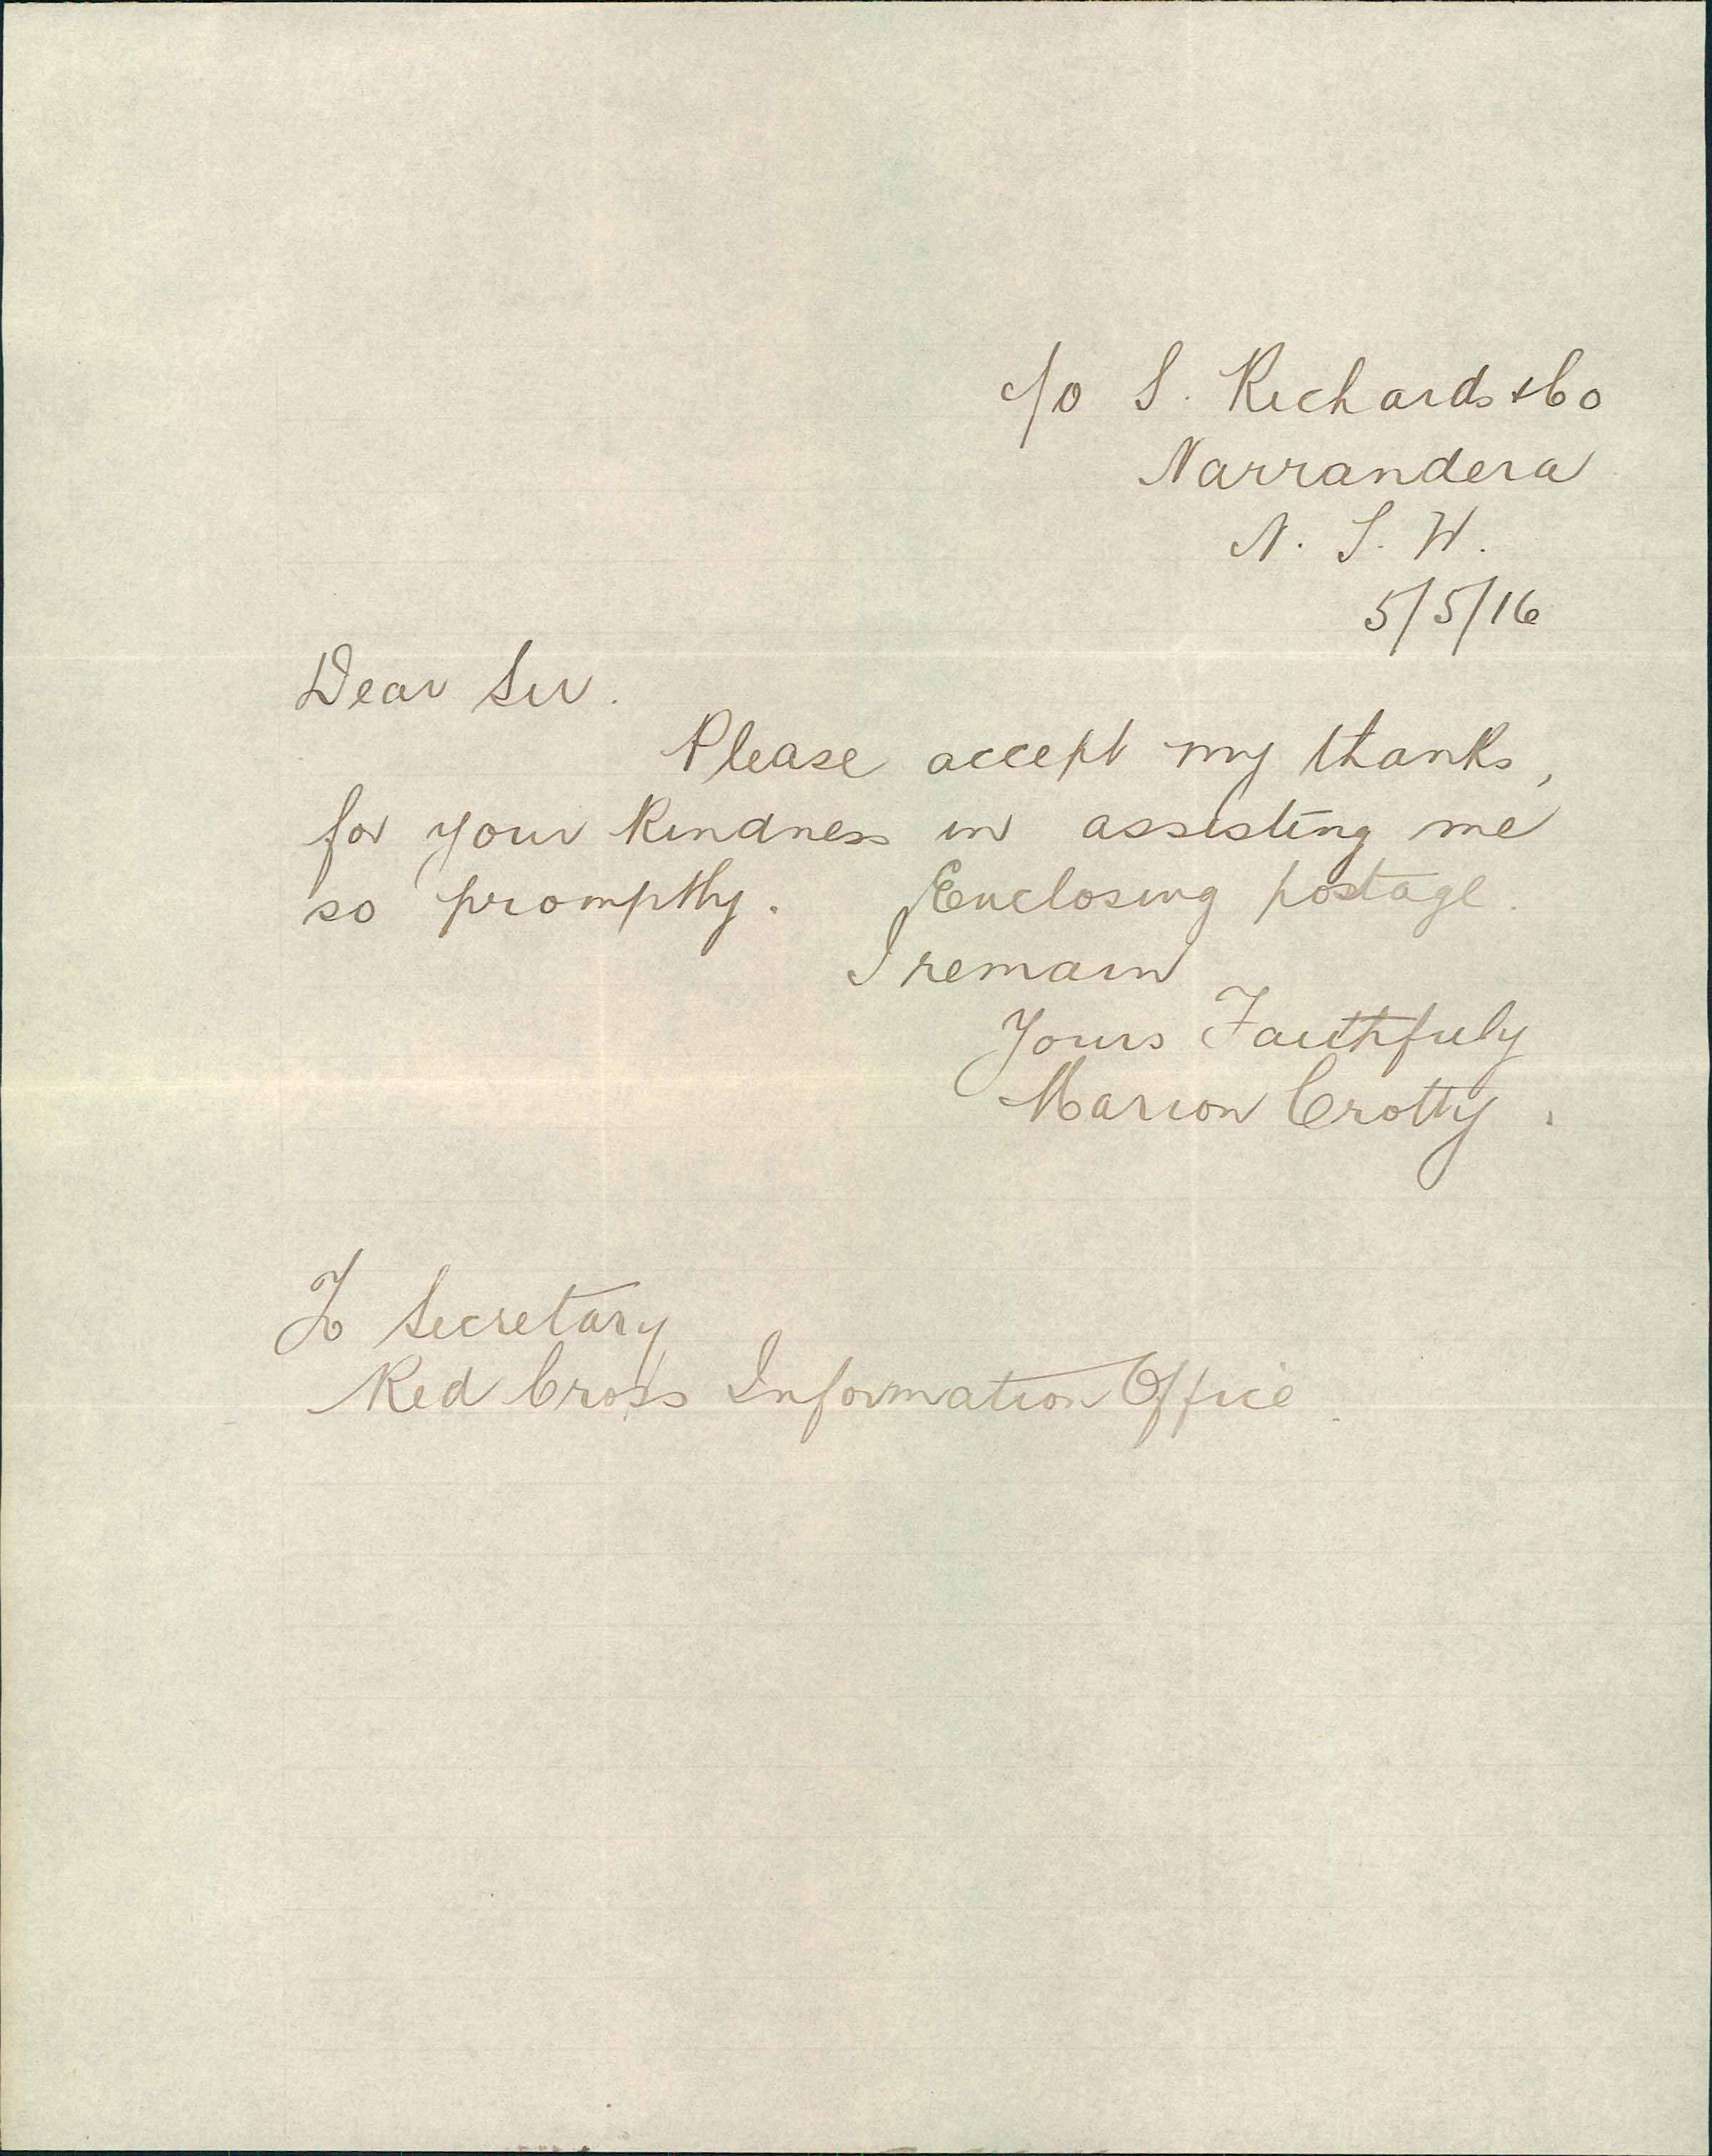 c/o S. Richards & Co
Narrandera
N. S. W.
5/5/16
Dear Sir.
Please accept my thanks,
for your kindness in assisting me
so promptly. Enclosing postage.
I remain
Yours Faithfuly
Marion Crotty.
To Secretary
Red Cross Information Office.